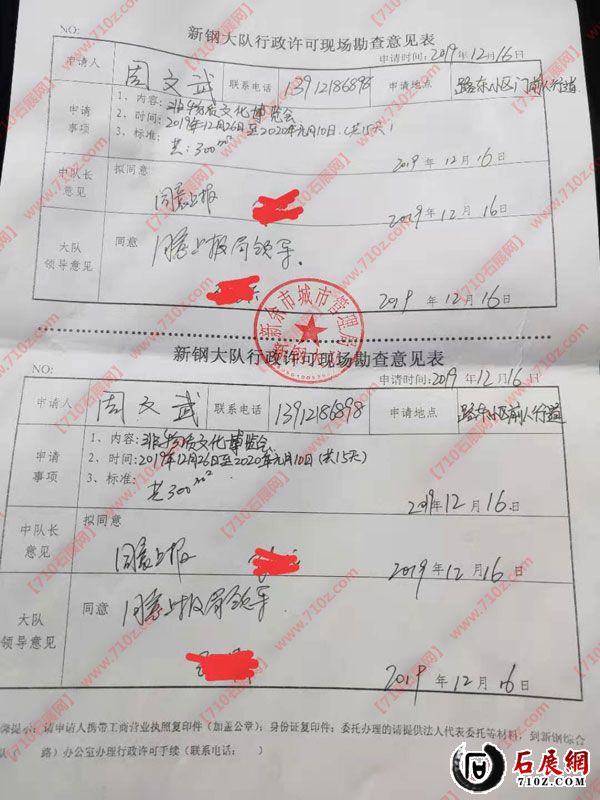 NO:
新钢大队行政许可现场勘查意见表
申请时间:2019年12月16日
申请人 周文武 联系电话 13912186898 申请地点 路东小区门前人行道
申请事项
1、内容:非物质文化博览会
2、时间:2019年12月26日至2020年元月10日(共15天)
3、标准:
共:300m²
2019年12月16日
中队长意见 拟同意
同意上报
2019年12月16日
大队领导意见 同意
同意上报局领导.
2019年12月16日
新余市城市管理局
新钢大队
新钢大队行政许可现场勘查意见表
NO:
申请时间:2019年12月16日
申请人 周文武 联系电话 13912186898 申请地点 路东小区前人行道
申请事项
1、内容:非物质文化博览会
2、时间:2019年12月26日至2020年元月10日(共15天)
3、标准:
共300m²
2019年12月16日
中队长意见 拟同意
同意上报
2019年12月16日
大队领导意见 同意
同意上报局领导.
2019年12月16日
馨提示:请申请人携带工商营业执照复印件(加盖公章);身份证复印件;委托办理的请提供法人代表委托等材料,到新钢综合
队( 路)办公室办理行政许可手续(联系电话: )
【710石展网】www.710z.com
石展網
710Z.COM